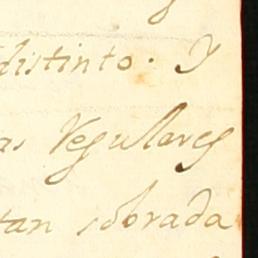 distinto. Y
as Regulares
tan sobrada